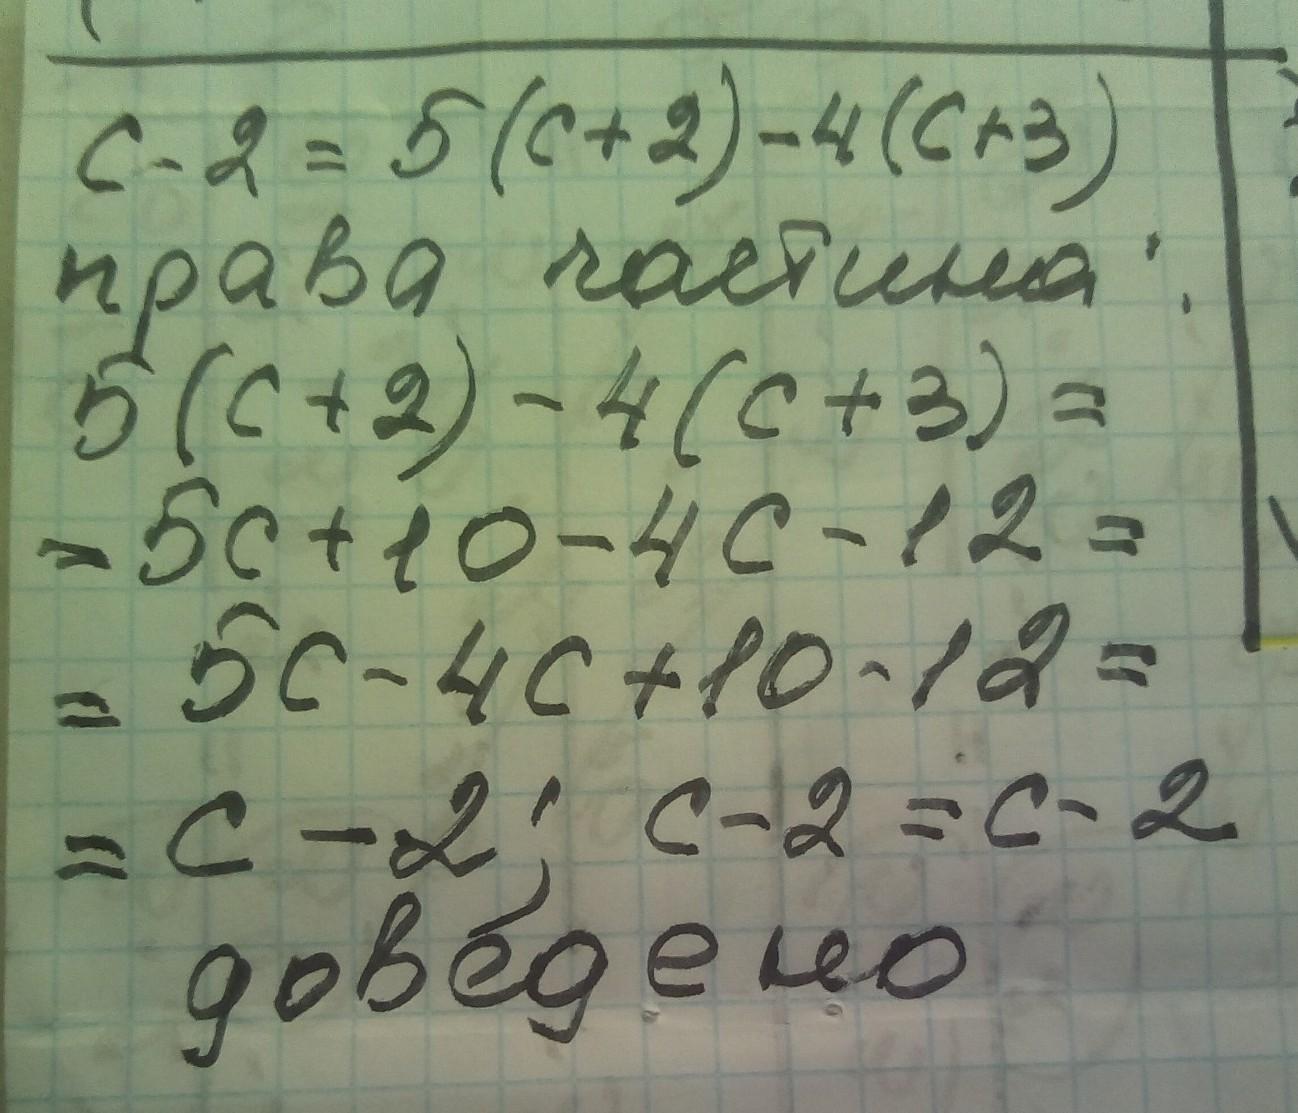 с-2=5(с+2)-4(с+3)
права частина:
5(с+2)-4(с+3)=
=5с+10-4с-12=
=5с-4с+10-12=
=с-2; с-2=с-2
доведено